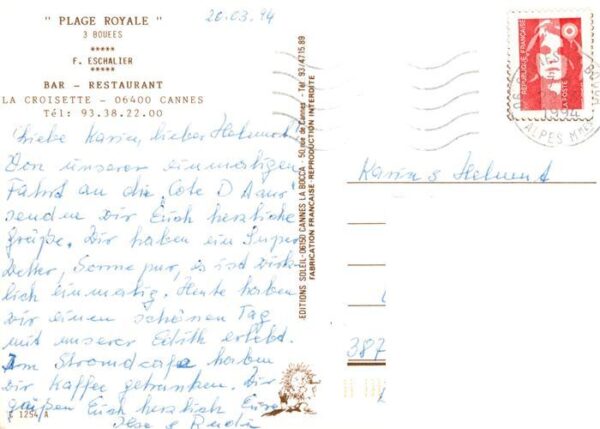 " PLAGE ROYALE "
3 BOUEES
*****
F. ESCHALIER
*****
BAR - RESTAURANT
LA CROISETTE - 06400 CANNES
Tél: 93.38.22.00
20.03.94
Liebe Karin, lieber Helmut!
Von unserer einmaligen
Fahrt an die Cote D Azur
senden wir Euch herzliche
Grüße. Wir haben ein Super
Wetter, Sonne pur, es ist wirk-
lich einmalig. Heute haben
wir einen schönen Tag
mit unserer Edith erlebt.
Im Strandcafe haben
wir Kaffee getrunken. Wir
grüßen Euch herzlich Eure
Ilse & Rudi
1254 A
EDITIONS SOLEIL-06150 CANNES LA BOCCA - 50, rue de Cannes - Tél. 93/47.15.89
FABRICATION FRANCAISE REPRODUCTION INTERDITE
REPUBLIQUE FRANÇAISE
LA POSTE
1994
ALPES MMES
Karin & Helmut
387